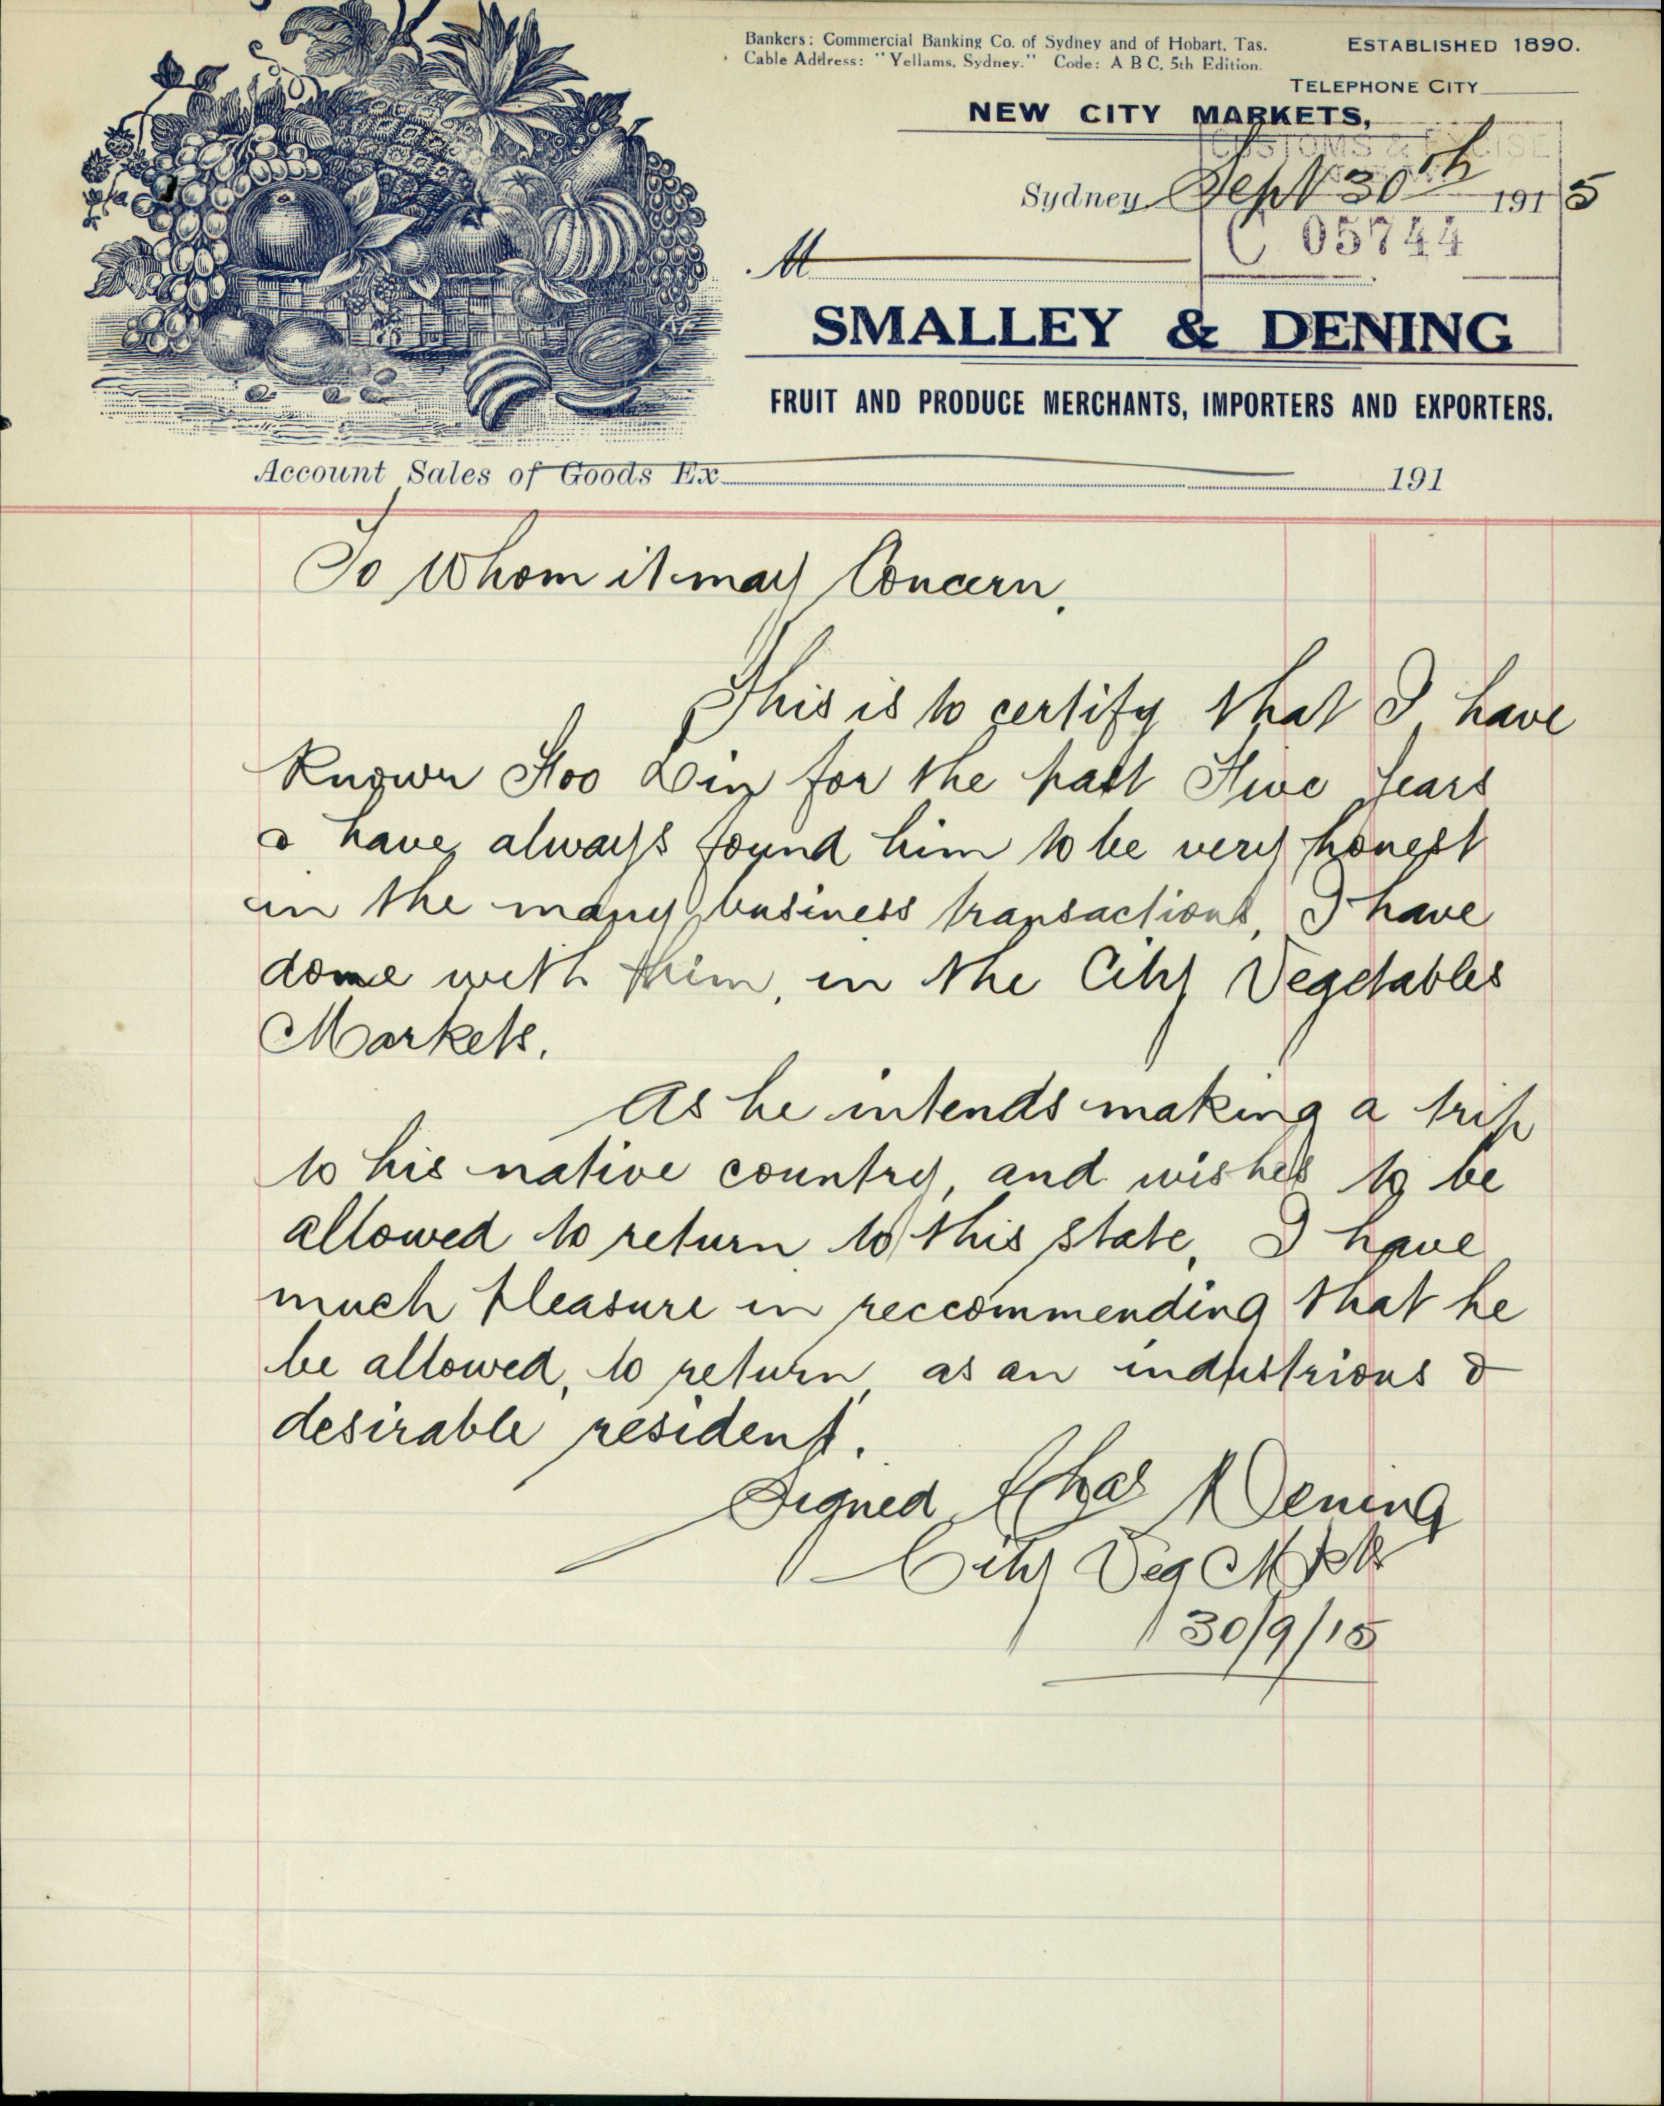 Bankers: Commercial Banking Co. of Sydney and of Hobart, Tas.
Cable Address: "Yellams, Sydney." Code: A B C, 5th Edition.
ESTABLISHED 1890.
TELEPHONE CITY
NEW CITY MARKETS,
CUSTOMS & EXCISE
Sydney Sept 30th 1915
C 05744
M
SMALLEY & DENING
FRUIT AND PRODUCE MERCHANTS, IMPORTERS AND EXPORTERS.
Account Sales of Goods Ex 191
To Whom it may Concern,
This is to certify that I have
Known Foo Lin for the past Five Years
& have always found him to be very honest
in the many business transactions, I have
done with him, in the City Vegetables
Markets.
As he intends making a trip
to his native country, and wishes to be
allowed to return to this state, I have
much pleasure in reccommending that he
be allowed, to return, as an industrious &
desirable resident.
Signed Chas Dening
City Veg Mkts
30/9/15